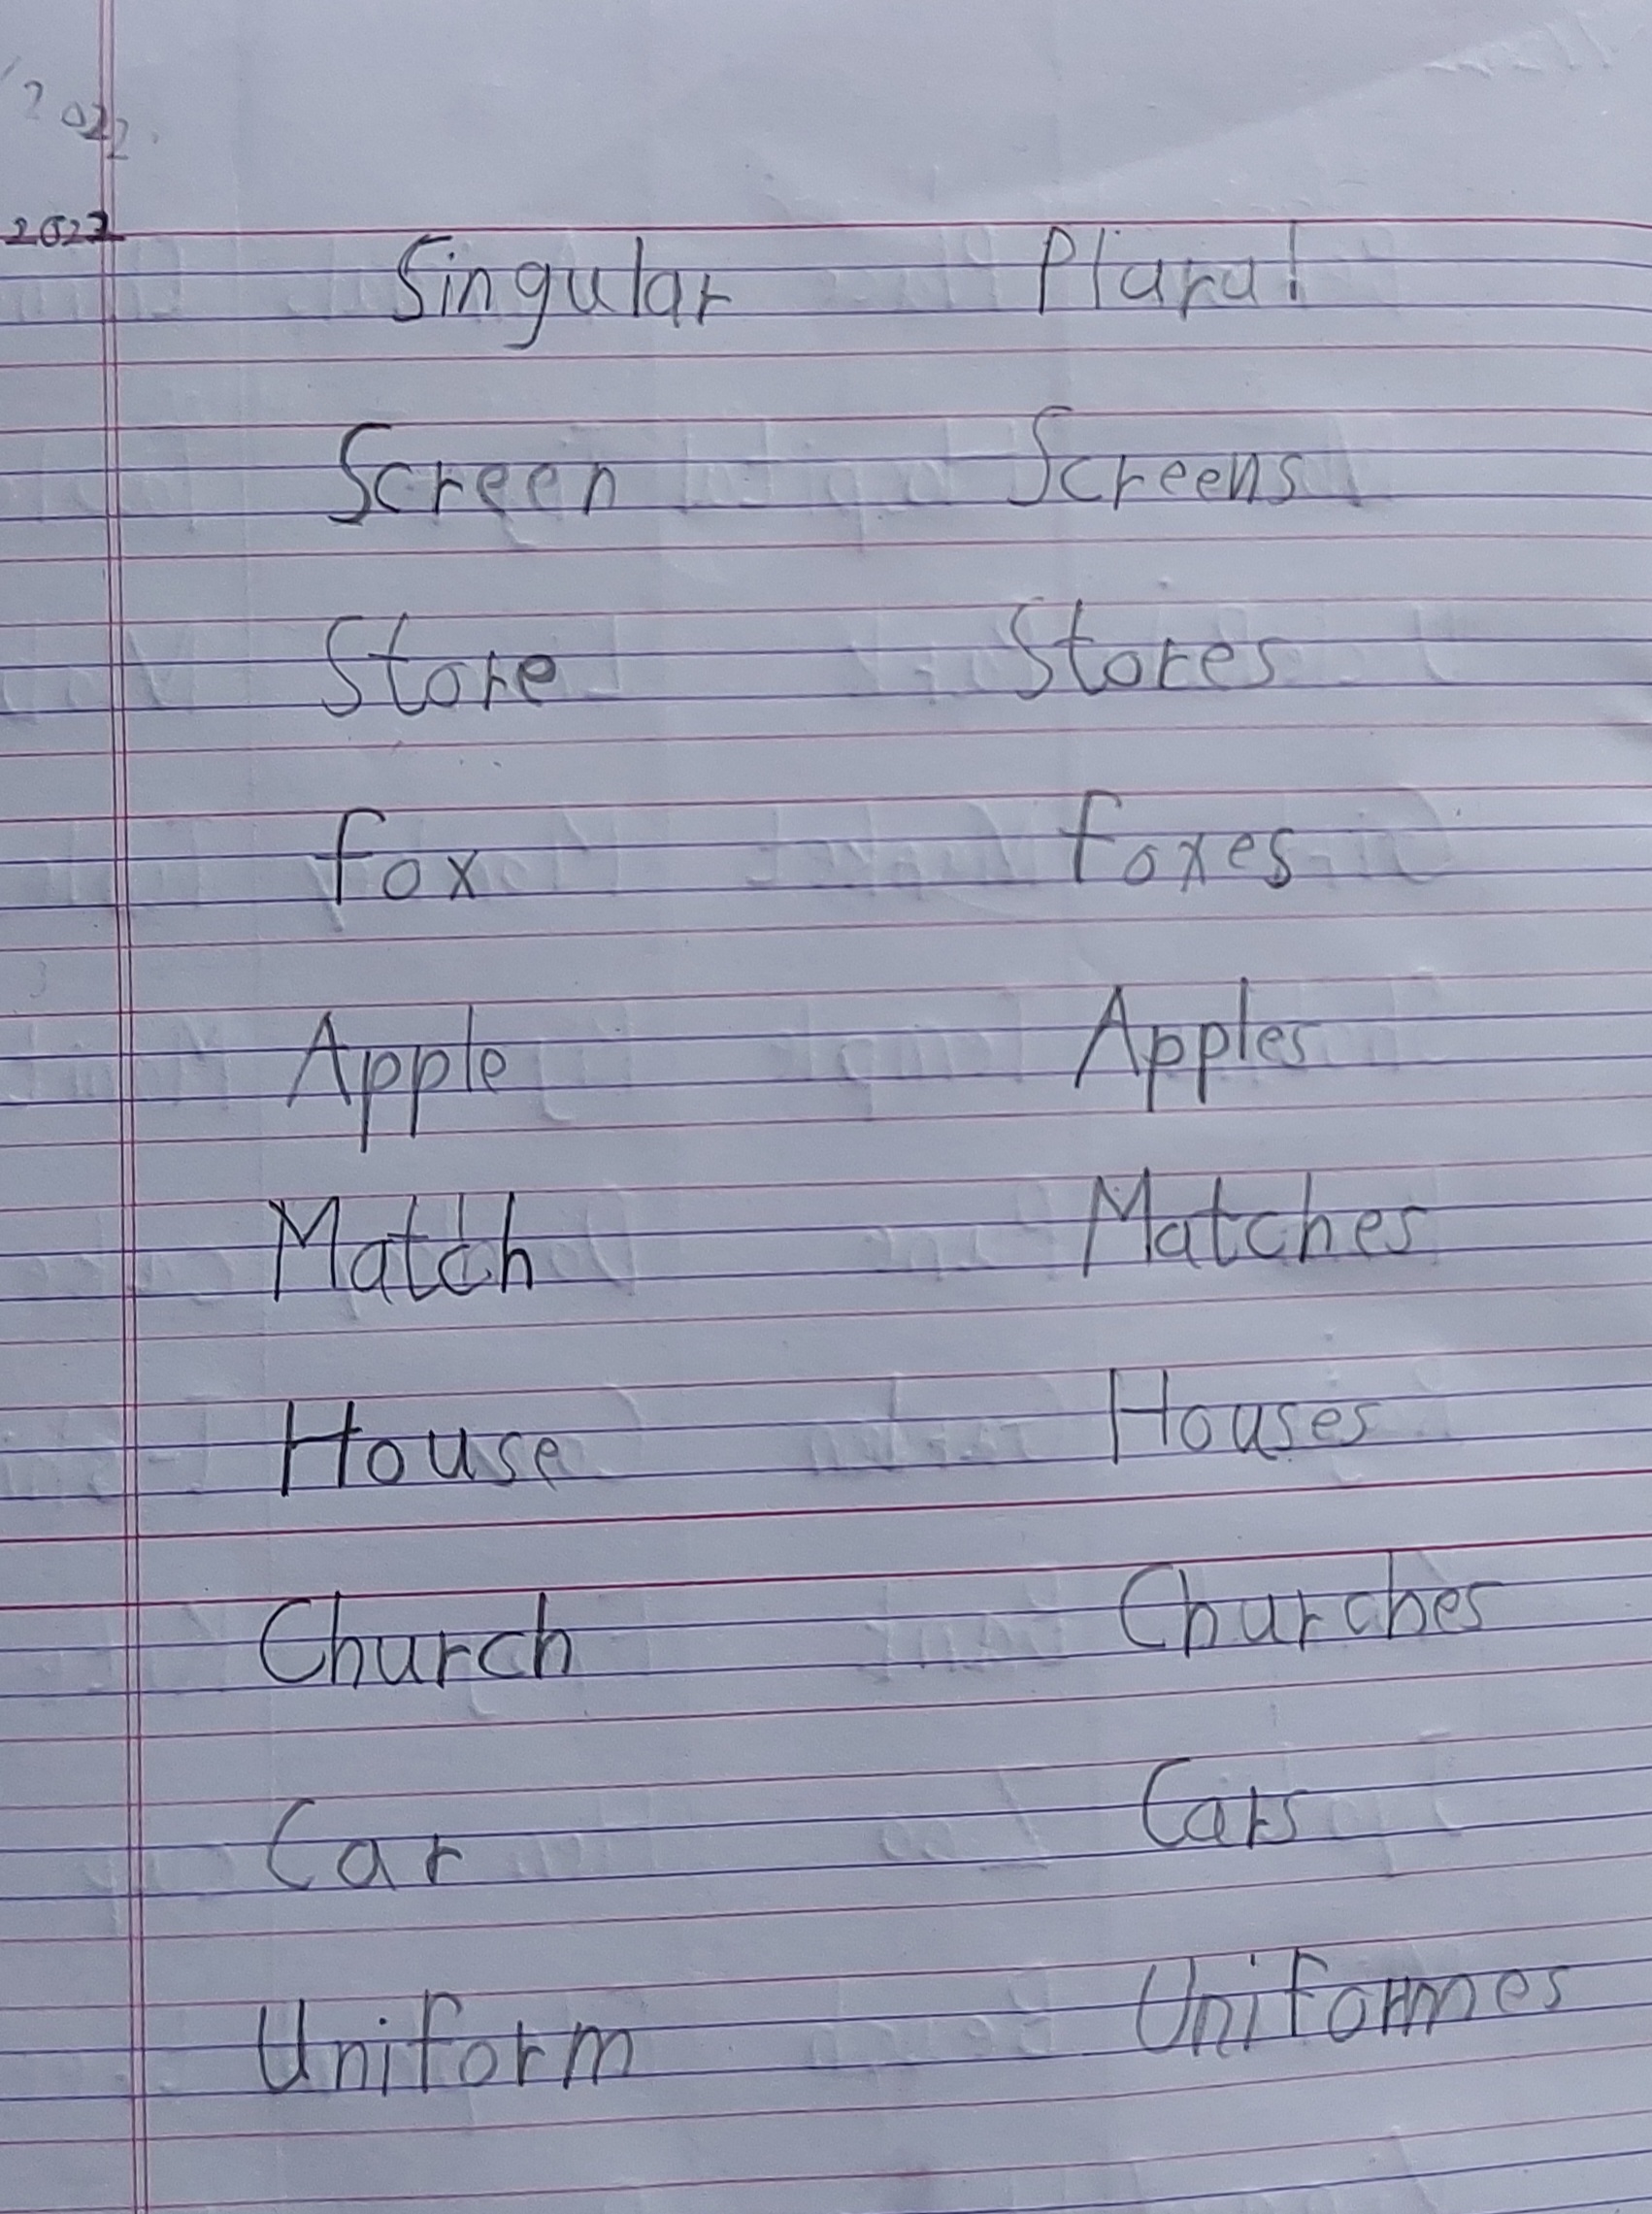 2022.
2022
Singular Plural
Screen Screens
Store Stores
fox foxes
Apple Apples
Match Matches
House Houses
Church Churches
Car Cars
Uniform Uniformes